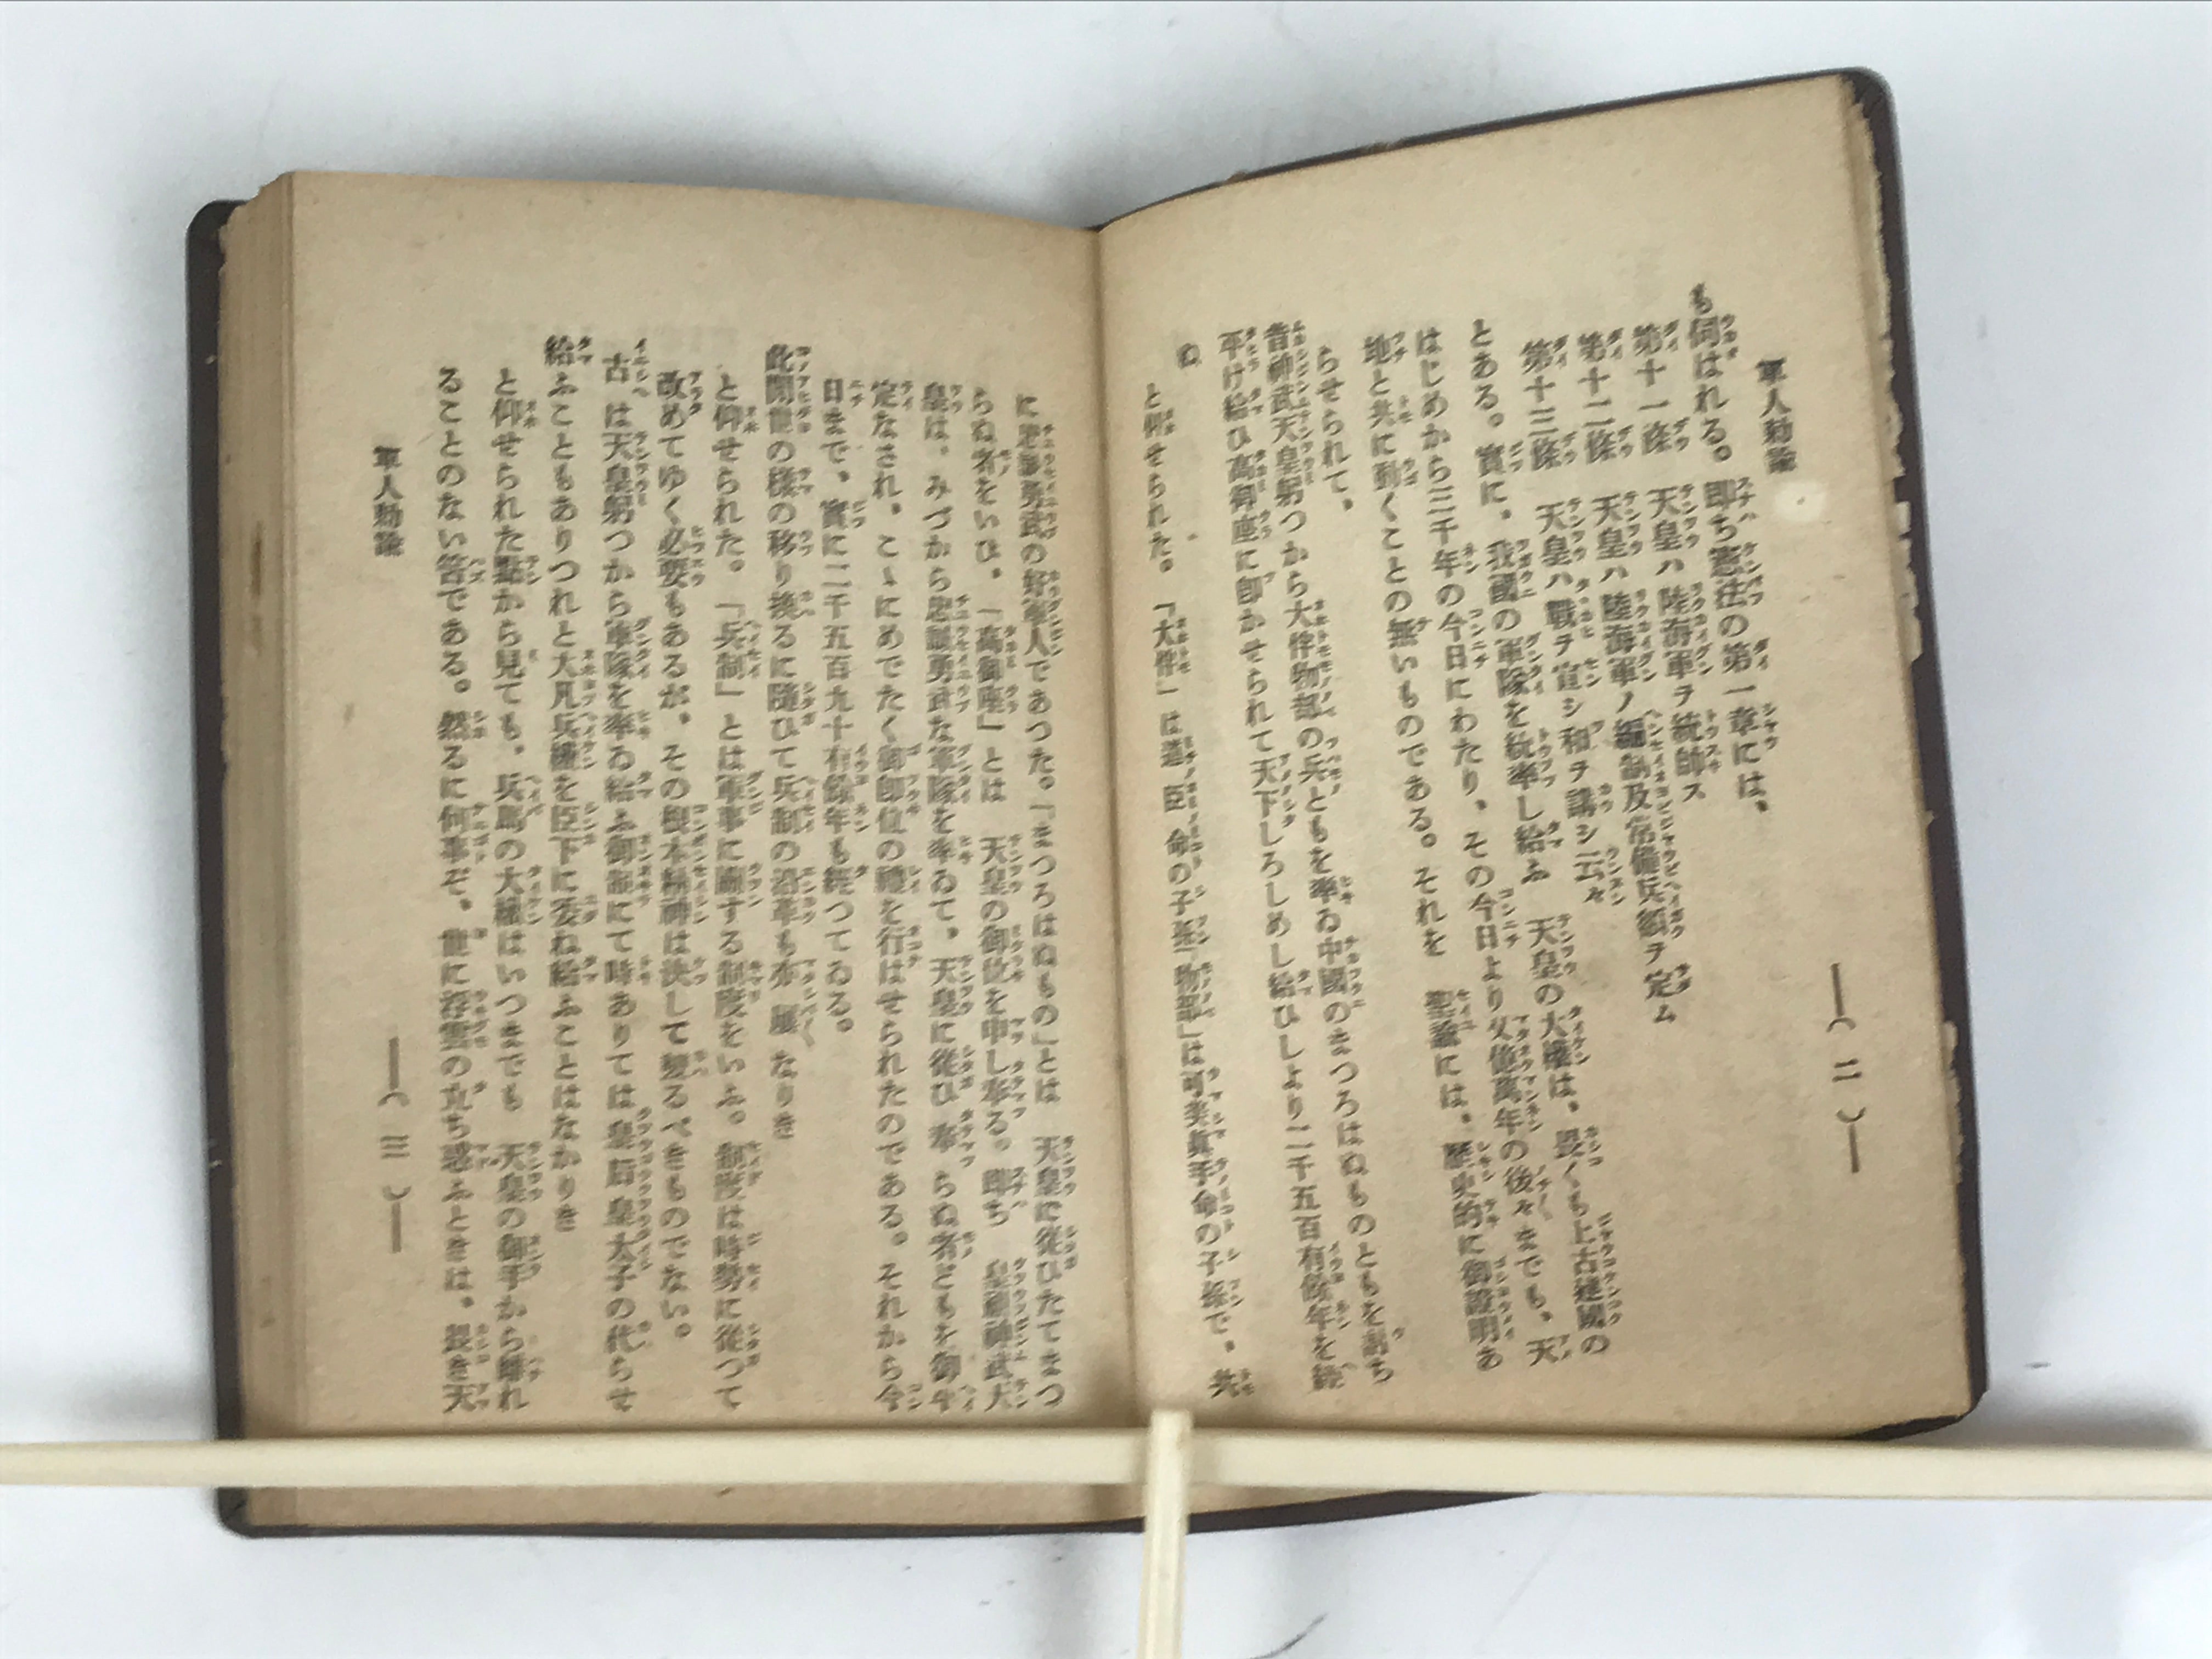 軍人勅諭
―( 二 )―
も伺はれる。卽ち憲法の第一章には、
第十一條 天皇ハ陸海軍ヲ統帥ス
第十二條 天皇ハ陸海軍ノ編制及常備兵額ヲ定ム
第十三條 天皇ハ戰ヲ宣シ和ヲ講シ云々
とある。實に、我國の軍隊を統率し給ふ 天皇の大權は、畏くも上古建國の
はじめから三千年の今日にわたり、その今日より又億萬年の後々までも、天
地と共に動くことの無いものである。それを 聖諭には、歷史的に御證明あ
らせられて、
昔神武天皇躬つから大伴物部の兵ともを率ゐ中國のまつろはぬものともを討ち
平け給ひ高御座に卽かせられて天下しろしめし給ひしより二千五百有餘年を經
ぬ
と仰せられた。「大伴」は道臣命の子孫「物部」は可美眞手命の子孫で、共
に忠誠勇武の好軍人であつた。「まつろはぬもの」とは 天皇に從ひたてまつ
らぬ者をいひ、「高御座」とは 天皇の御位を申し奉る。卽ち 皇祖神武天
皇は、みづから忠誠勇武な軍隊を率ゐて、天皇に從ひ奉らぬ者どもを御平
定なされ、こゝにめでたく御卽位の禮を行はせられたのである。それから今
日まで、實に二千五百九十有餘年も經つてゐる。
此間世の樣の移り換るに隨ひて兵制の沿革も亦屢なりき
と仰せられた。「兵制」とは軍事に關する制度をいふ。制度は時勢に從つて
改めてゆく必要もあるが、その根本精神は決して變るべきものでない。
古は天皇躬つから軍隊を率ゐ給ふ御制にて時ありては皇后皇太子の代らせ
給ふこともありつれと大凡兵權を臣下に委ね給ふことはなかりき
と仰せられた點から見ても、兵馬の大權はいつまでも 天皇の御手から離れ
ることのない筈である。然るに何事ぞ、世に浮雲の立ち惑ふときは、長き天
軍人勅諭
―( 三 )―